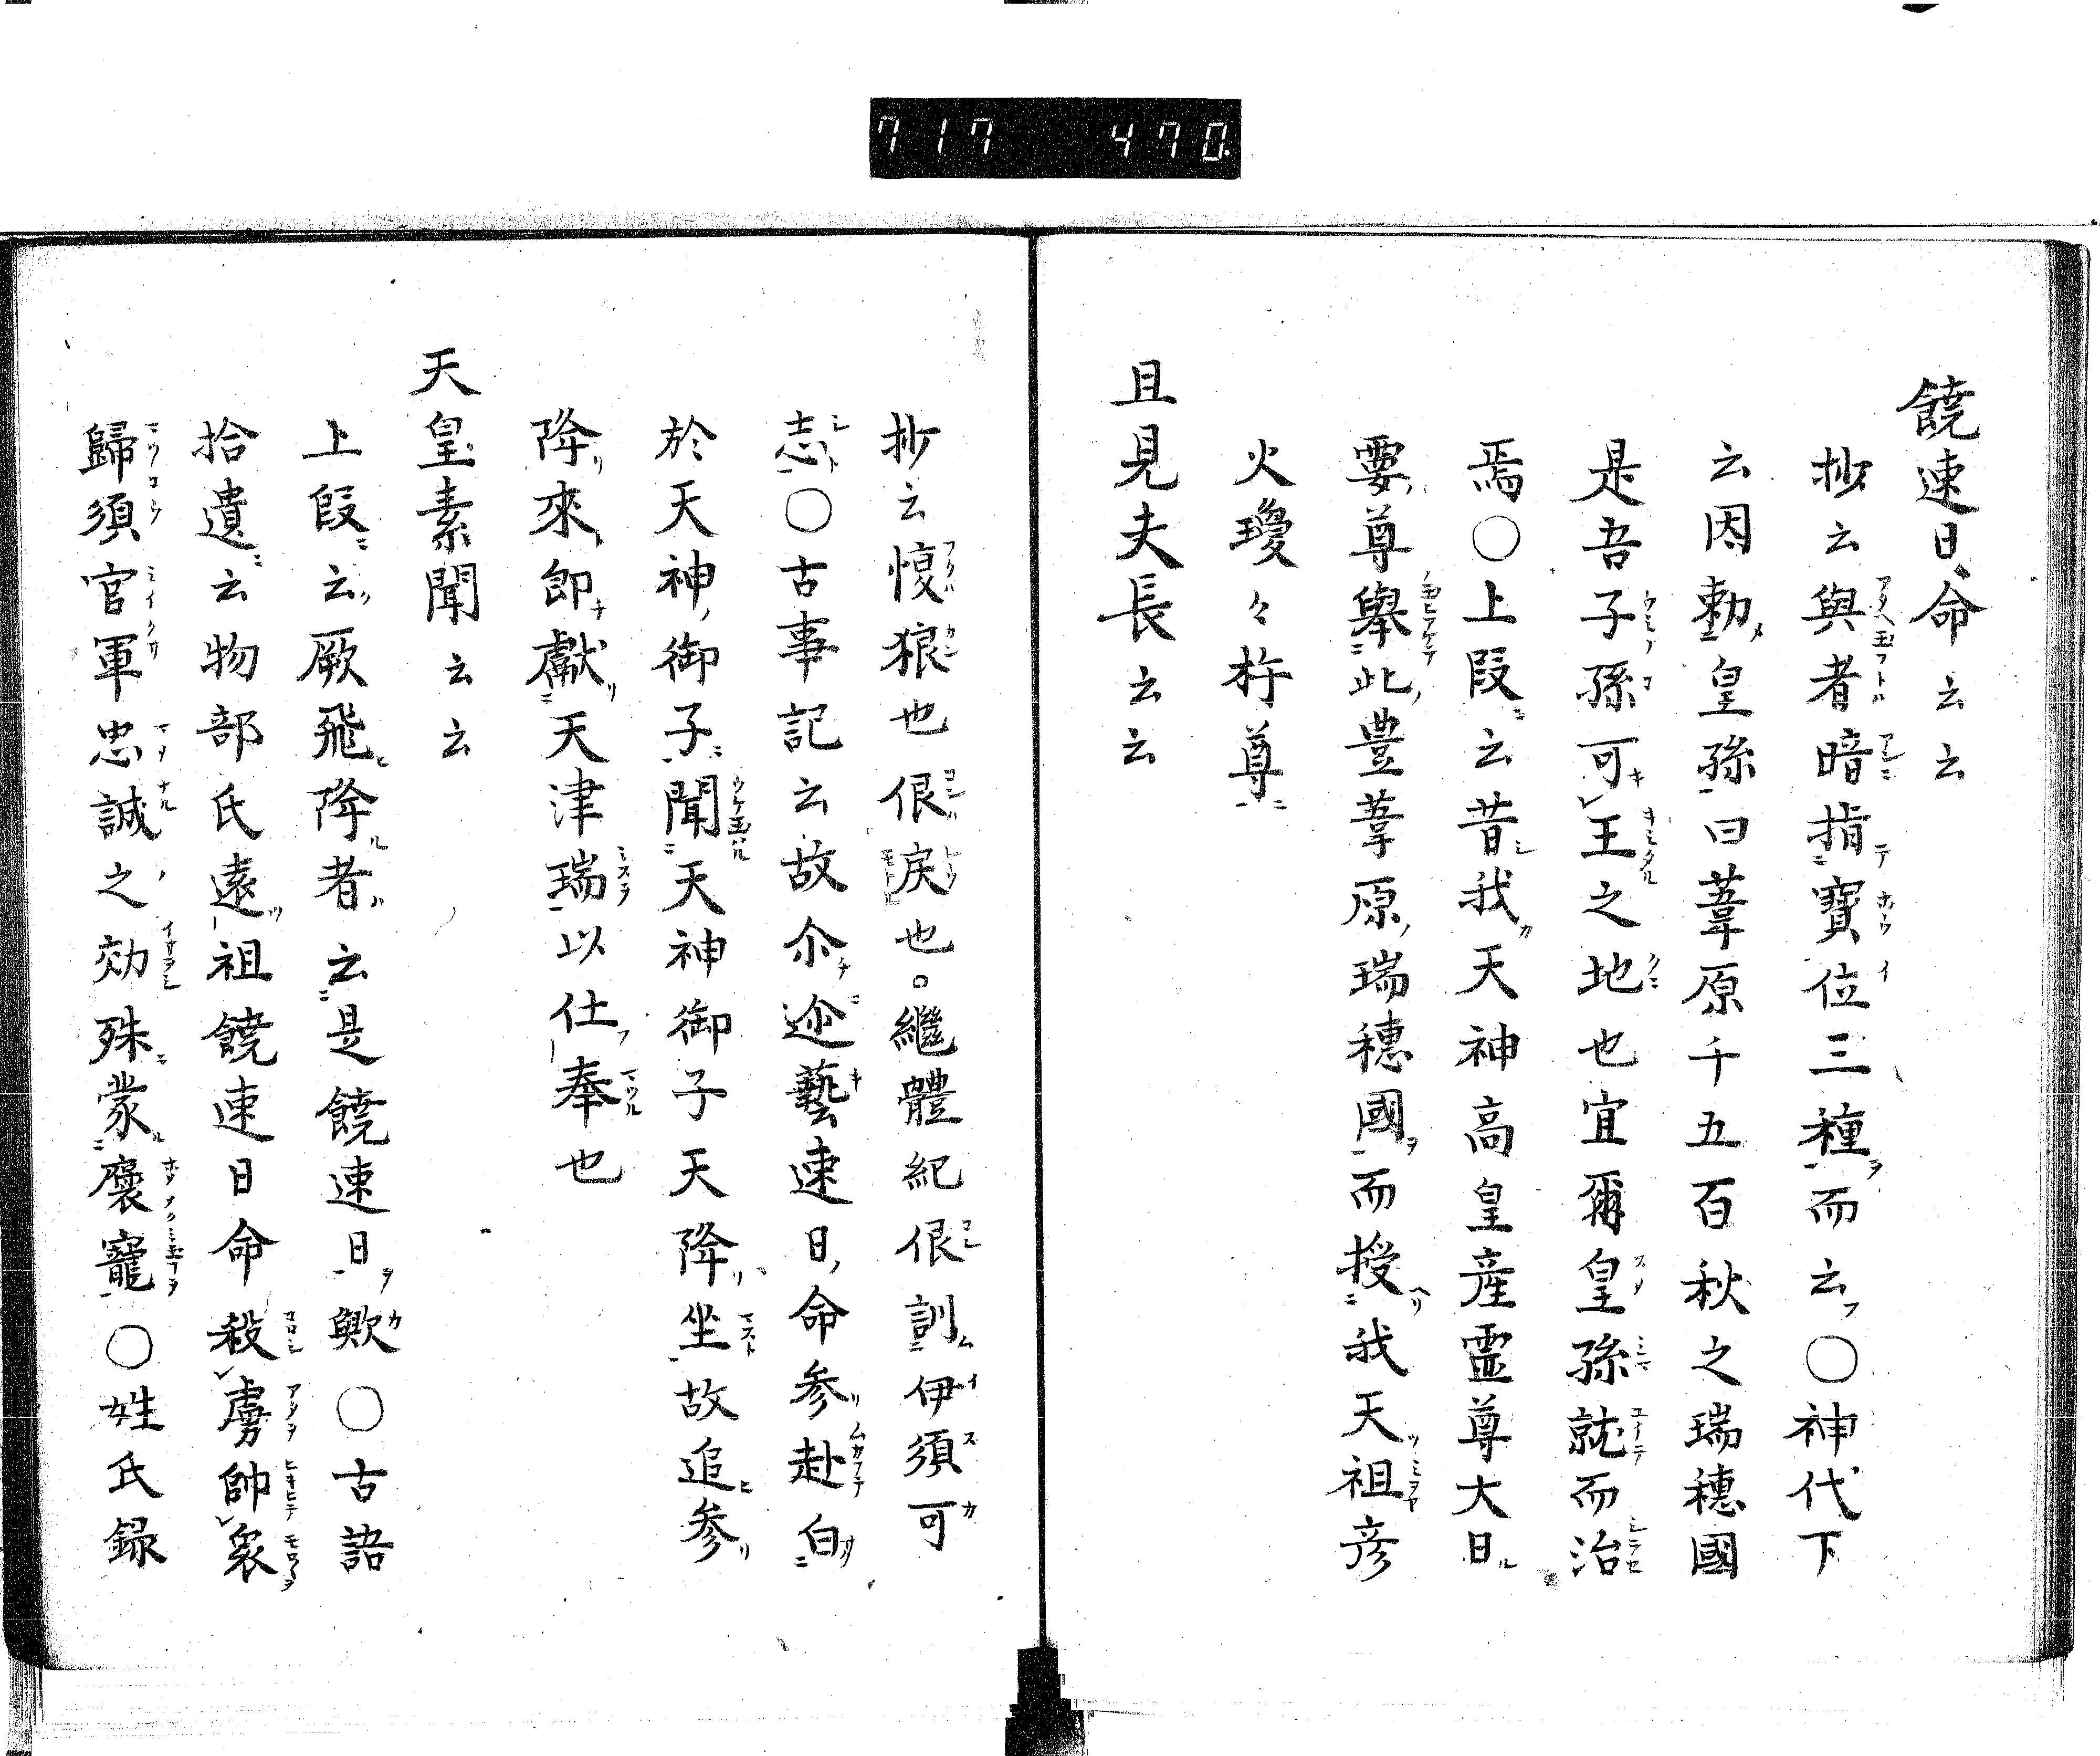 717 470.
饒速日命云云
抄云與者暗指寶位三種而云〇神代下
云因勅皇孫曰葦原千五百秋之瑞穗國
是吾子孫可王之地也宜爾皇孫就而治
焉〇上段云昔我天神高皇産霊尊大日
孁尊舉此豊葦原瑞穗國而授我天祖彦
火瓊々杵尊
且見夫長云云
抄云愎狠也佷戻也。繼體紀佷訓伊須可
志〇古事記云故尒迩藝速日命参赴白
於天神御子聞天神御子天降坐故追参
降來即獻天津瑞以仕奉也
天皇素聞云云
上段云厥飛降者云是饒速日歟〇古語
拾遺云物部氏遠祖饒速日命殺虜帥衆
歸須官軍忠誠之効殊蒙褒寵〇姓氏録